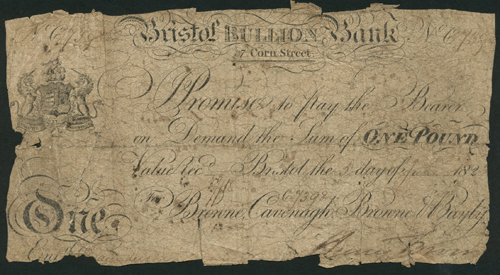 Bristol BULLION Bank
Corn Street
I Promise to pay the Bearer
on Demand the Sum of ONE POUND
Value rec.d Bristol the day of 182
For Browne Cavenagh Browne & Bayly
C7398
One